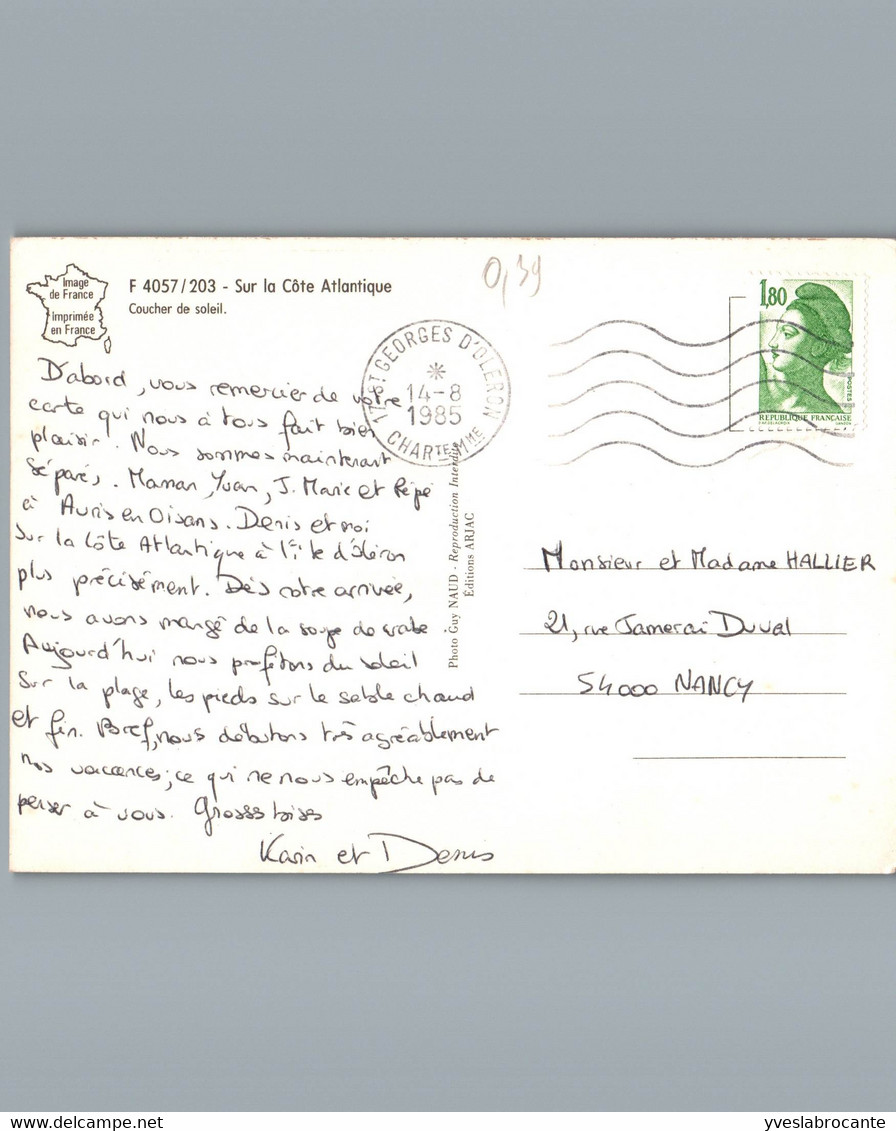 Image
de France
Imprimée
en France
F 4057/203 - Sur la Côte Atlantique
Coucher de soleil.
0,39
17 ST GEORGES D'OLERON
14-8
1985
CHARTE MME
1,80
POSTES
REPUBLIQUE FRANÇAISE
D'abord, vous remercier de votre
carte qui nous à tous fait bien
plaisir. Nous sommes maintenant
séparés. Maman, Yvan, J. Marie et Pépé
à Auris en Oisans. Denis et moi
sur la Côte Atlantique à l'île d'Oléron
plus précisément. Dès notre arrivée,
nous avons mangé de la soupe de crabe
Aujourd'hui nous profitons du soleil
sur la plage, les pieds sur le sable chaud
et fin. Bref, nous débutons très agréablement
nos vacances; ce qui ne nous empêche pas de
penser à vous. Grosses bises
Karin et Denis
Photo Guy NAUD - Reproduction Interdite
Éditions ARJAC
Monsieur et Madame HALLIER
21, rue Jamerai Duval
54000 NANCY
yveslabrocante